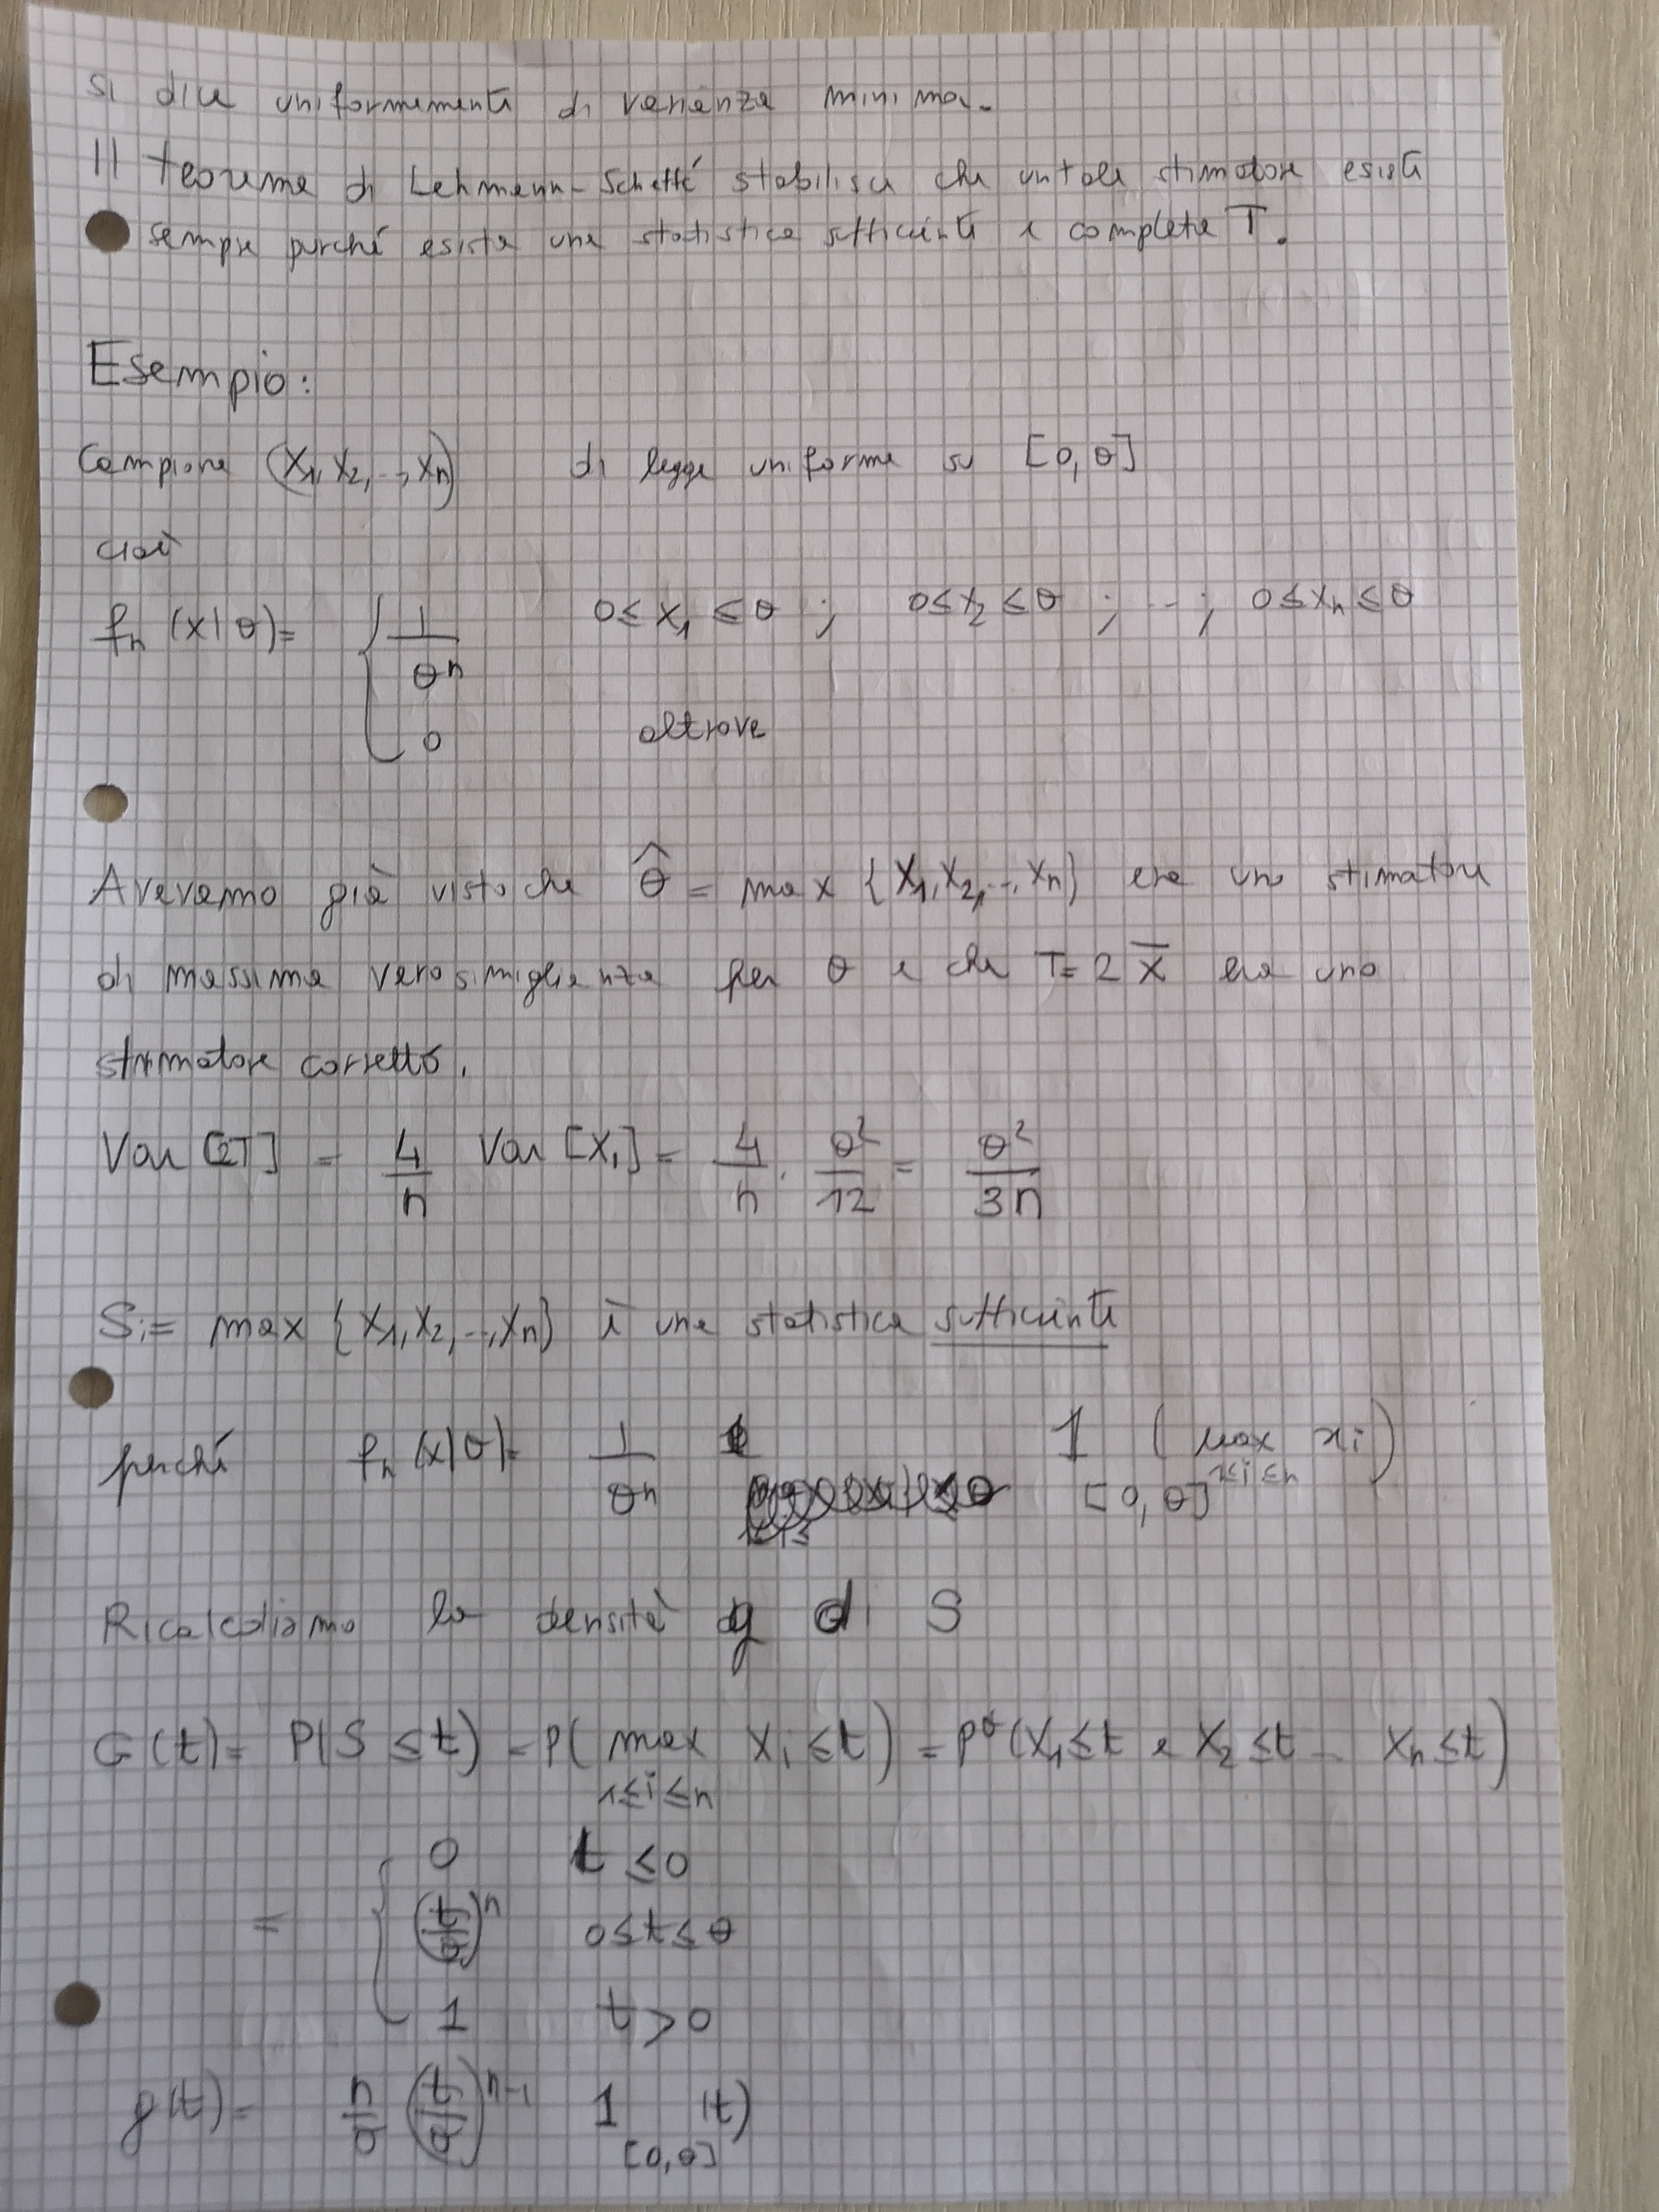 si dice uniformemente di varianza minima.
Il teorema di Lehmann-Scheffé stabilisce che un tale stimatore esiste
sempre purché esista una statistica sufficiente e completa T.
Esempio:
Campione (X₁, X₂, .., Xₙ) di legge uniforme su [0, θ]
cioè
fₙ (x|θ) = { 1/θⁿ 0 ≤ x₁ ≤ θ ; 0 ≤ x₂ ≤ θ ; - ; 0 ≤ xₙ ≤ θ
0 altrove
Avevamo già visto che θ̂ = max {X₁, X₂, .., Xₙ} era uno stimatore
di massima verosimiglianza per θ e che T = 2 X̄ era uno
stimatore corretto.
Var [2T] = 4/n Var [X₁] = 4/n · θ²/12 = θ²/3n
S:= max {X₁, X₂, .., Xₙ} è una statistica sufficiente
perché fₙ (x|θ) = 1/θⁿ 1[0, θ] (max xi) 1≤i≤n
Ricalcoliamo la densità g di S
G(t) = P(S ≤ t) = P( max Xi ≤ t) = Pᶿ (X₁ ≤ t e X₂ ≤ t - Xₙ ≤ t)
1≤i≤n
= { 0 t ≤ 0
(t/θ)ⁿ 0 ≤ t ≤ θ
1 t > θ
g(t) = n/θ (t/θ)ⁿ⁻¹ 1[0, θ] (t)